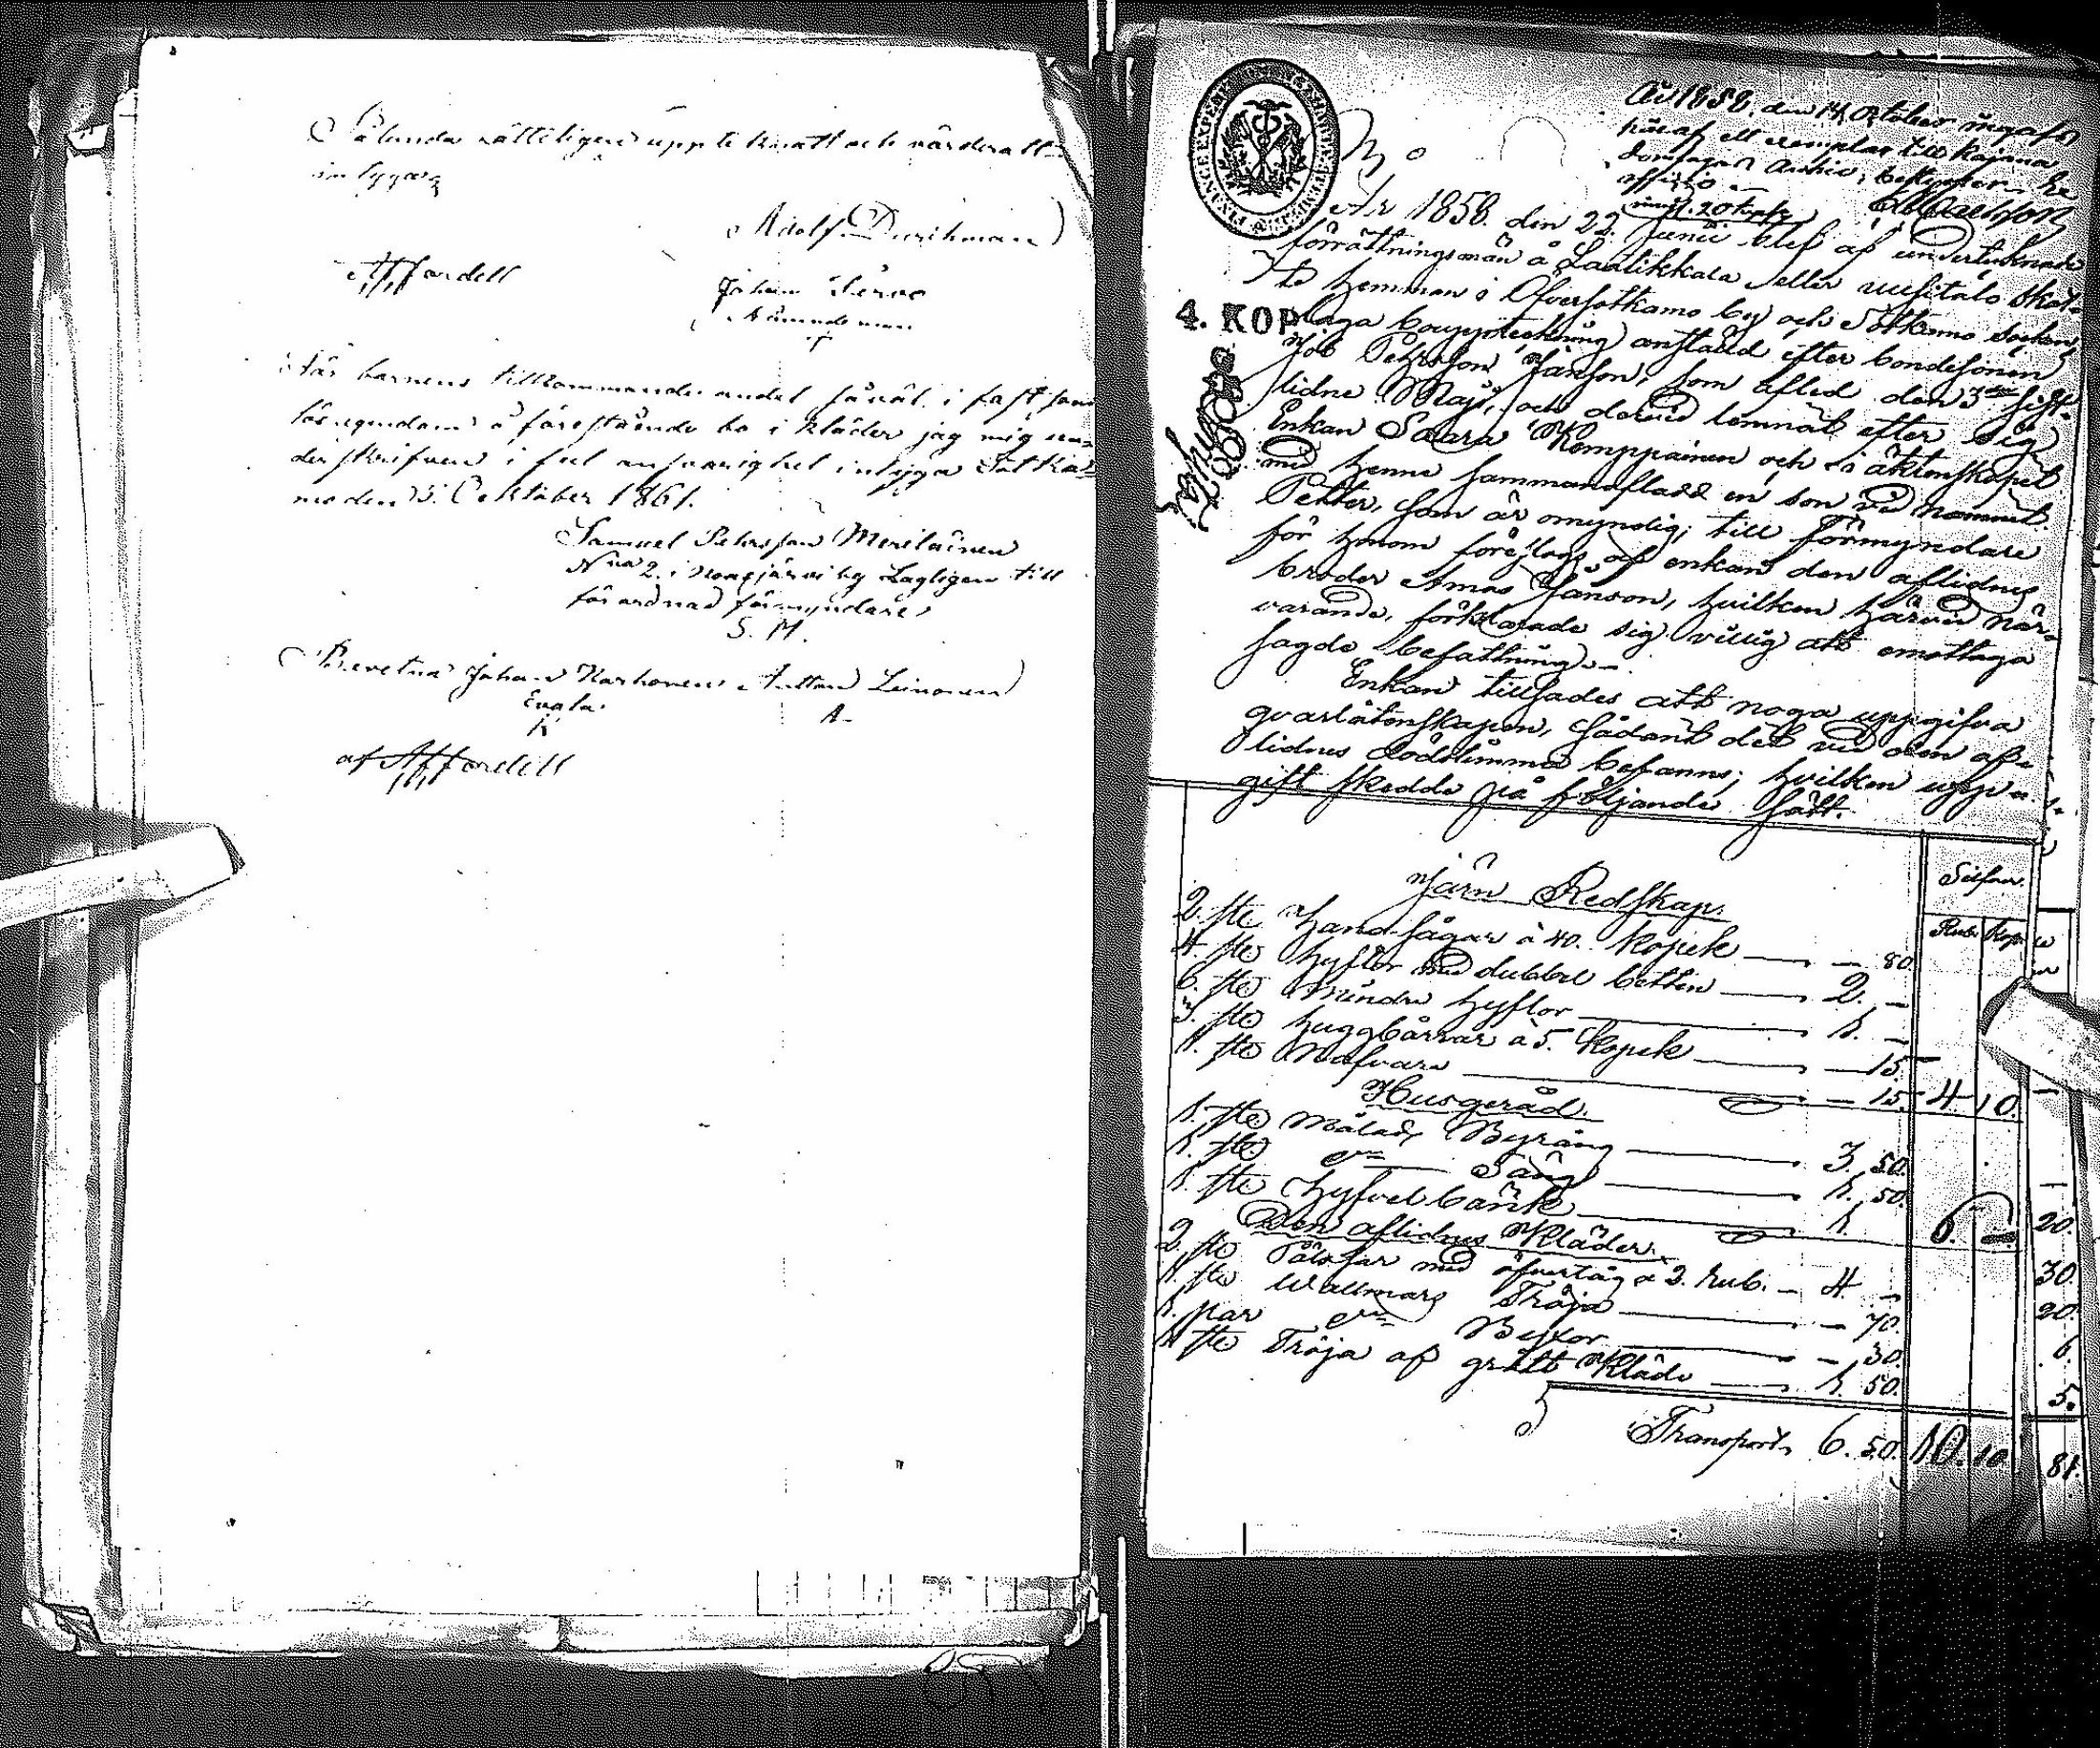 Sålunda rätteligen upptecknatt och värderatt
intygar
Adolf Durchman
Johan Servo
Nämndeman
För barnens tillkommande andel såväl i fast som
lös egendom å förestående bo i kläder jag mig un-
derskrifven i ful ansvarighet intyga Sotka-
mo den 3 October 1861.
Samuel Pehrsson Meriläinen
No 2. i Nuasjärvi by Lagligen till
förordnad förmyndare
S. M.
Bevetna Johan Karhonen Anttan Leinonen
K A
4. KOP
År 1858. den 14 October ingafs
häraf ett exemplar till Kajana
Domsagas Archiv, betygar
officio
År 1858. den 22. Junii blef af undertecknade
förrättningsmän å Laatikkala eller uusitalo skat-
te hemman i Öfversotkamo by och Sotkamo Socken,
laga bouppteckning anstäld efter bondesonen
Job Pehrsson Jänson, som afled den 3 sist-
lidne Maji, och dervid lemnat efter sig
Enkan Saara Kemppainen och i äktenskapet
med henne sammanaflad en son vid namnet
Petter, som är omyndig; till Förmyndare
för honom föreslogs af enkan den aflidnes
broder Amos Jänson, hvilken härvid när-
varande, förklarade sig villig att emottaga
sagde befattning.
Enkan tillsades att noga uppgifva
qvarlåtenskapen, sådant det vid den af-
lidnes dödstimma befanns; hvilken upp-
gift skedde på följande sätt.
Silfver.
Rub. Kop.
Järn Redskap.
2. ste Handsågar à 40. Kopek — 80
4. ste hyflor med dubbel bettin 2. —
6. ste Mindre hyflor 1. —
3. ste huggbårrar à 5. Kopek — 15
1. ste Nafvare — 15 4 10.
Husgeråd.
1. ste Målad Byrång 3. 50.
1. ste Säng 1. 50.
1. ste Hyfvelbänk 1. 6. —
Den aflidnes Kläder.
2. ste Pälsar med öfvertåg à 2. Rub. 4 —
1. ste Wallmars Tröja — 70.
1. par Byxor — 30.
1 ste Tröja af grått Kläde 1. 50.
Transport 6. 50. 10. 10
20.
30.
20.
6.
5.
81.